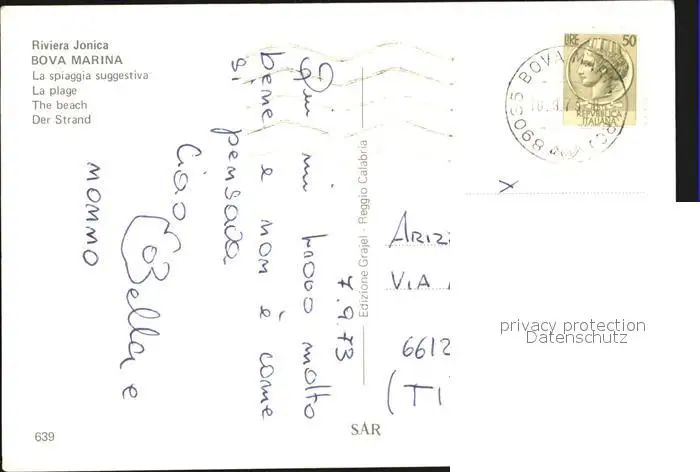 Riviera Jonica
BOVA MARINA
La spiaggia suggestiva
La plage
The beach
Der Strand
7.9.73
Qui mi trovo molto
bene e non è come
si pensava
Ciao Bella e
mommo
Edizione Grajel - Reggio Calabria
LIRE 50
REPVBBLICA
ITALIANA
89035 BOVA
X
ARIZ
VIA
6612
(TI
privacy protection
Datenschutz
639
SAR